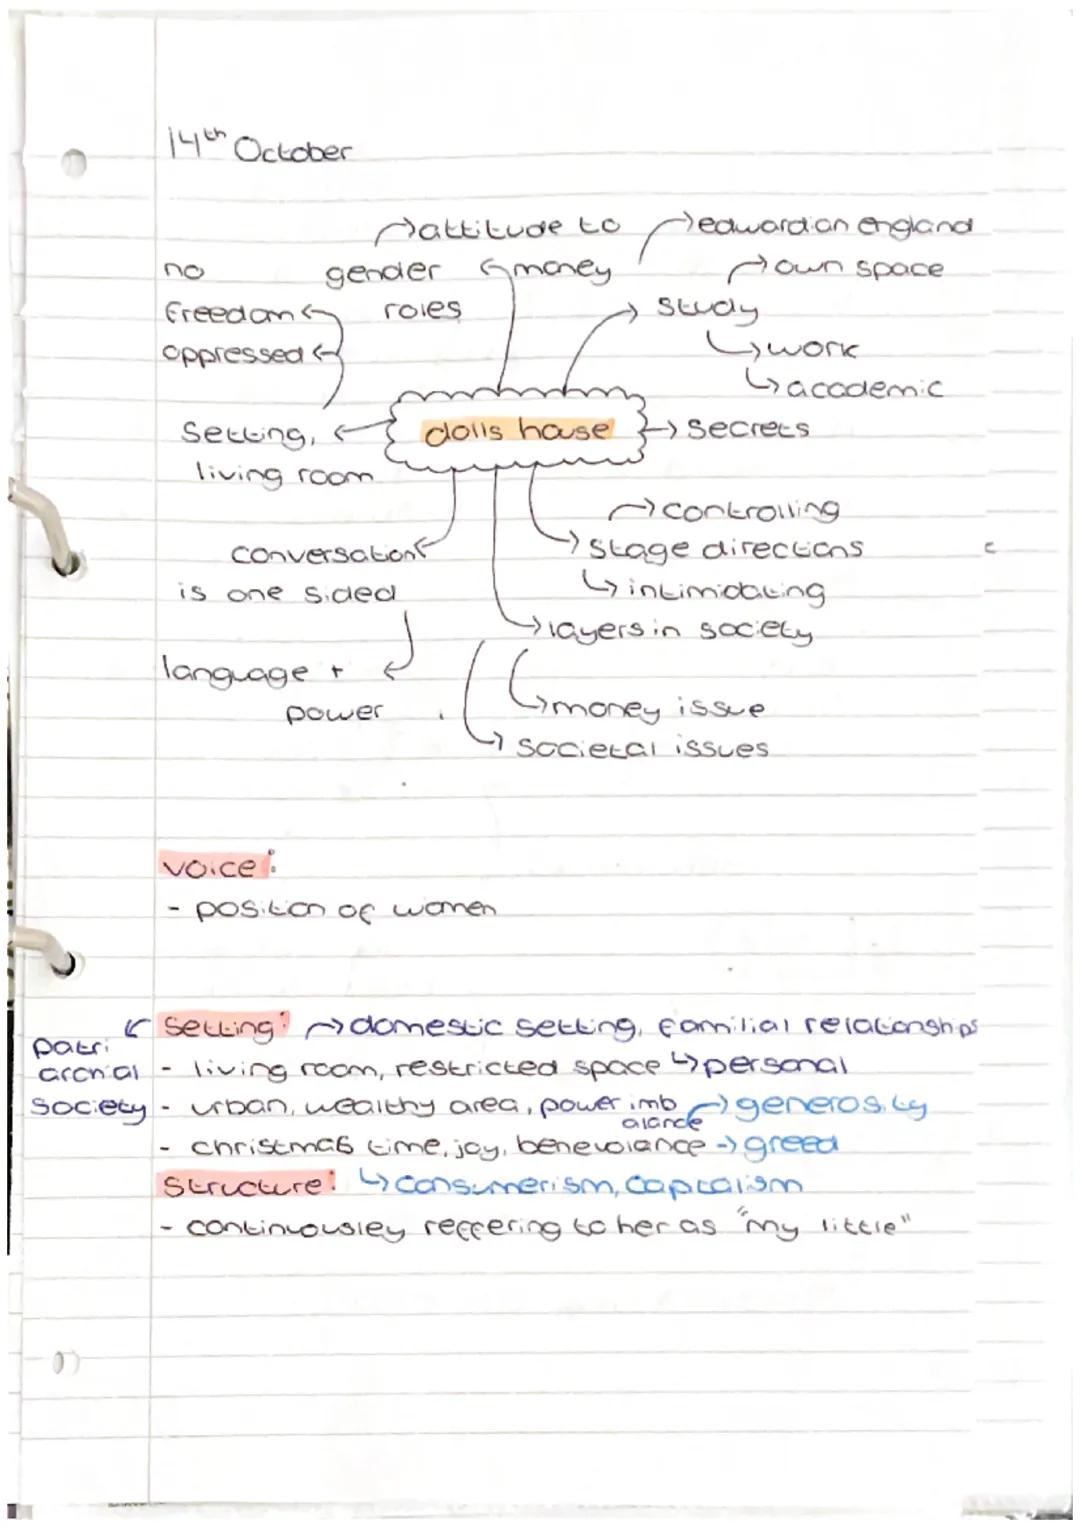 14th October
attitude to
edwardian england
no
gender
money
own space
freedom
roles
study
oppressed
work
academic
setting,
dolls house
secrets
living room
controlling
conversation
stage directions
is one sided
intimidating
layers in society
language +
power
money issue
societal issues
voice:
- position of women
setting: domestic setting, familial relationships
patri
archial
society
- living room, restricted space personal
- urban, wealthy area, power imb
alance
generosity
- christmas time, joy, benevolance → greed
structure: consumerism, captalism
- continuousley reffering to her as "my little"